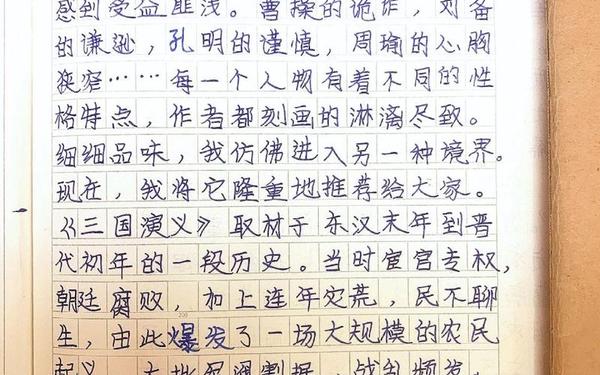 感到受益匪浅。曹操的诡诈，刘备
的谦逊，孔明的谨慎，周瑜的心胸
狭窄……每一个人物有着不同的性
格特点，作者都刻画的淋漓尽致。
细细品味，我仿佛进入另一种境界。
现在，我将它隆重地推荐给大家。
《三国演义》取材于东汉末年到晋
代初年的一段历史。当时宦官专权，
朝廷腐败，加上连年灾荒，民不聊
生，由此爆发了一场大规模的农民
起义。大批军阀割据，战乱频发，